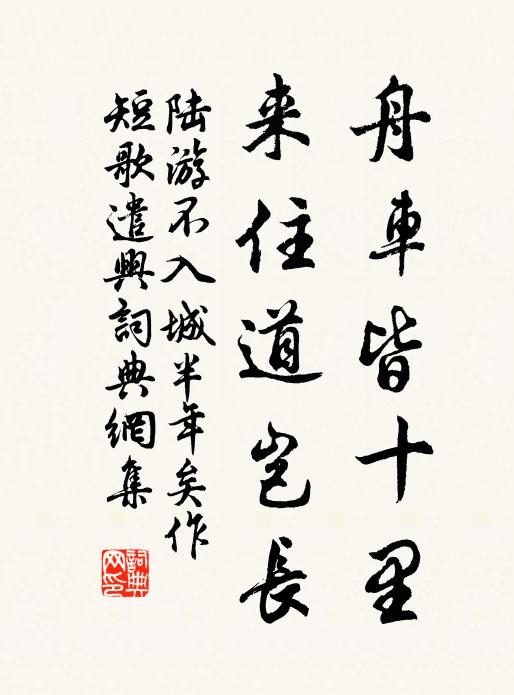 舟車皆十里
来住道豈長
陆游不入城半年矣作
短歌遣興詞典網集
詞典網印